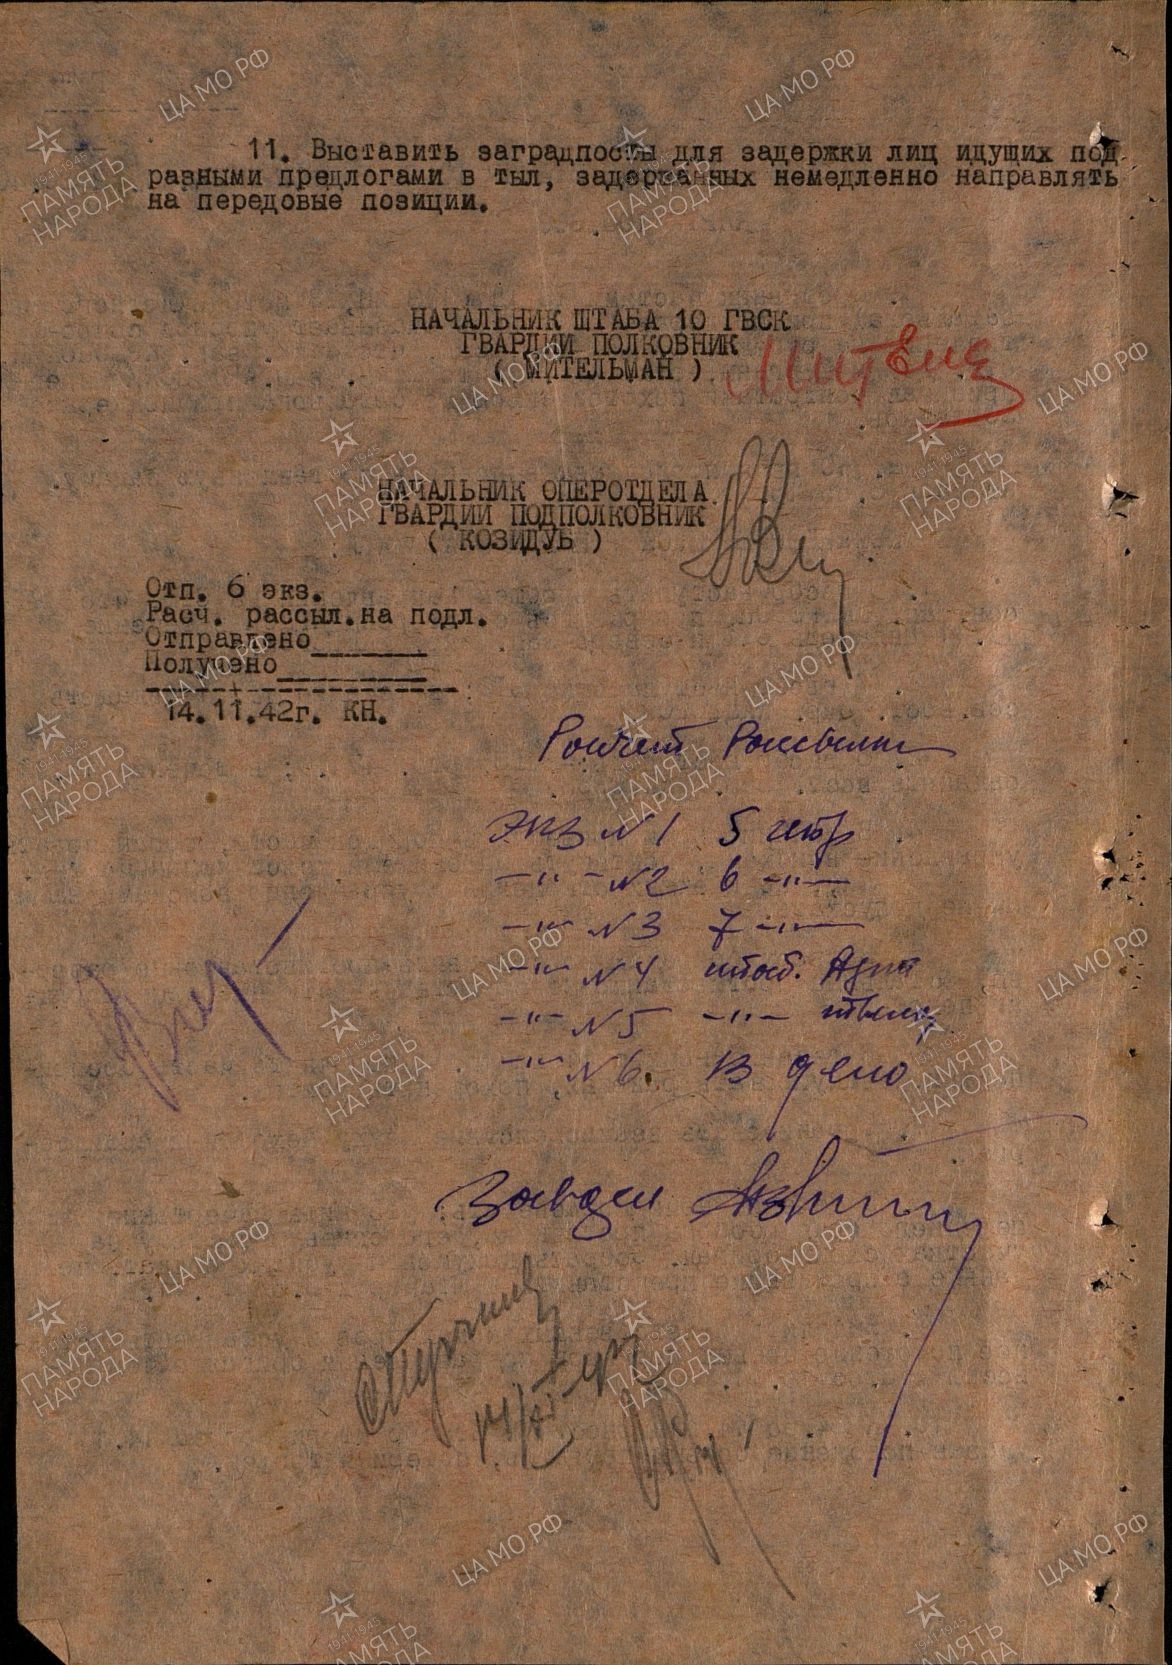 11. Выставить заградпосты для задержки лиц идущих под
разными предлогами в тыл, задержанных немедленно направлять
на передовые позиции.
НАЧАЛЬНИК ШТАБА 10 ГВСК
ГВАРДИИ ПОЛКОВНИК
( МИТЕЛЬМАН )
НАЧАЛЬНИК ОПЕРОТДЕЛА
ГВАРДИИ ПОДПОЛКОВНИК
( КОЗИДУБ )
Отп. 6 экз.
Расч. рассыл. на подл.
Отправлено
Получено
14.11.42г. КН.
Расчет Рассылки
Экз N 1 5 гстр
-"- N2 6 -"-
-"- N3 7 -"-
-"- N4 штаб. Арт
-"- N5 -"-
-"- N6. В дело
ЦА МО РФ
ПАМЯТЬ
НАРОДА